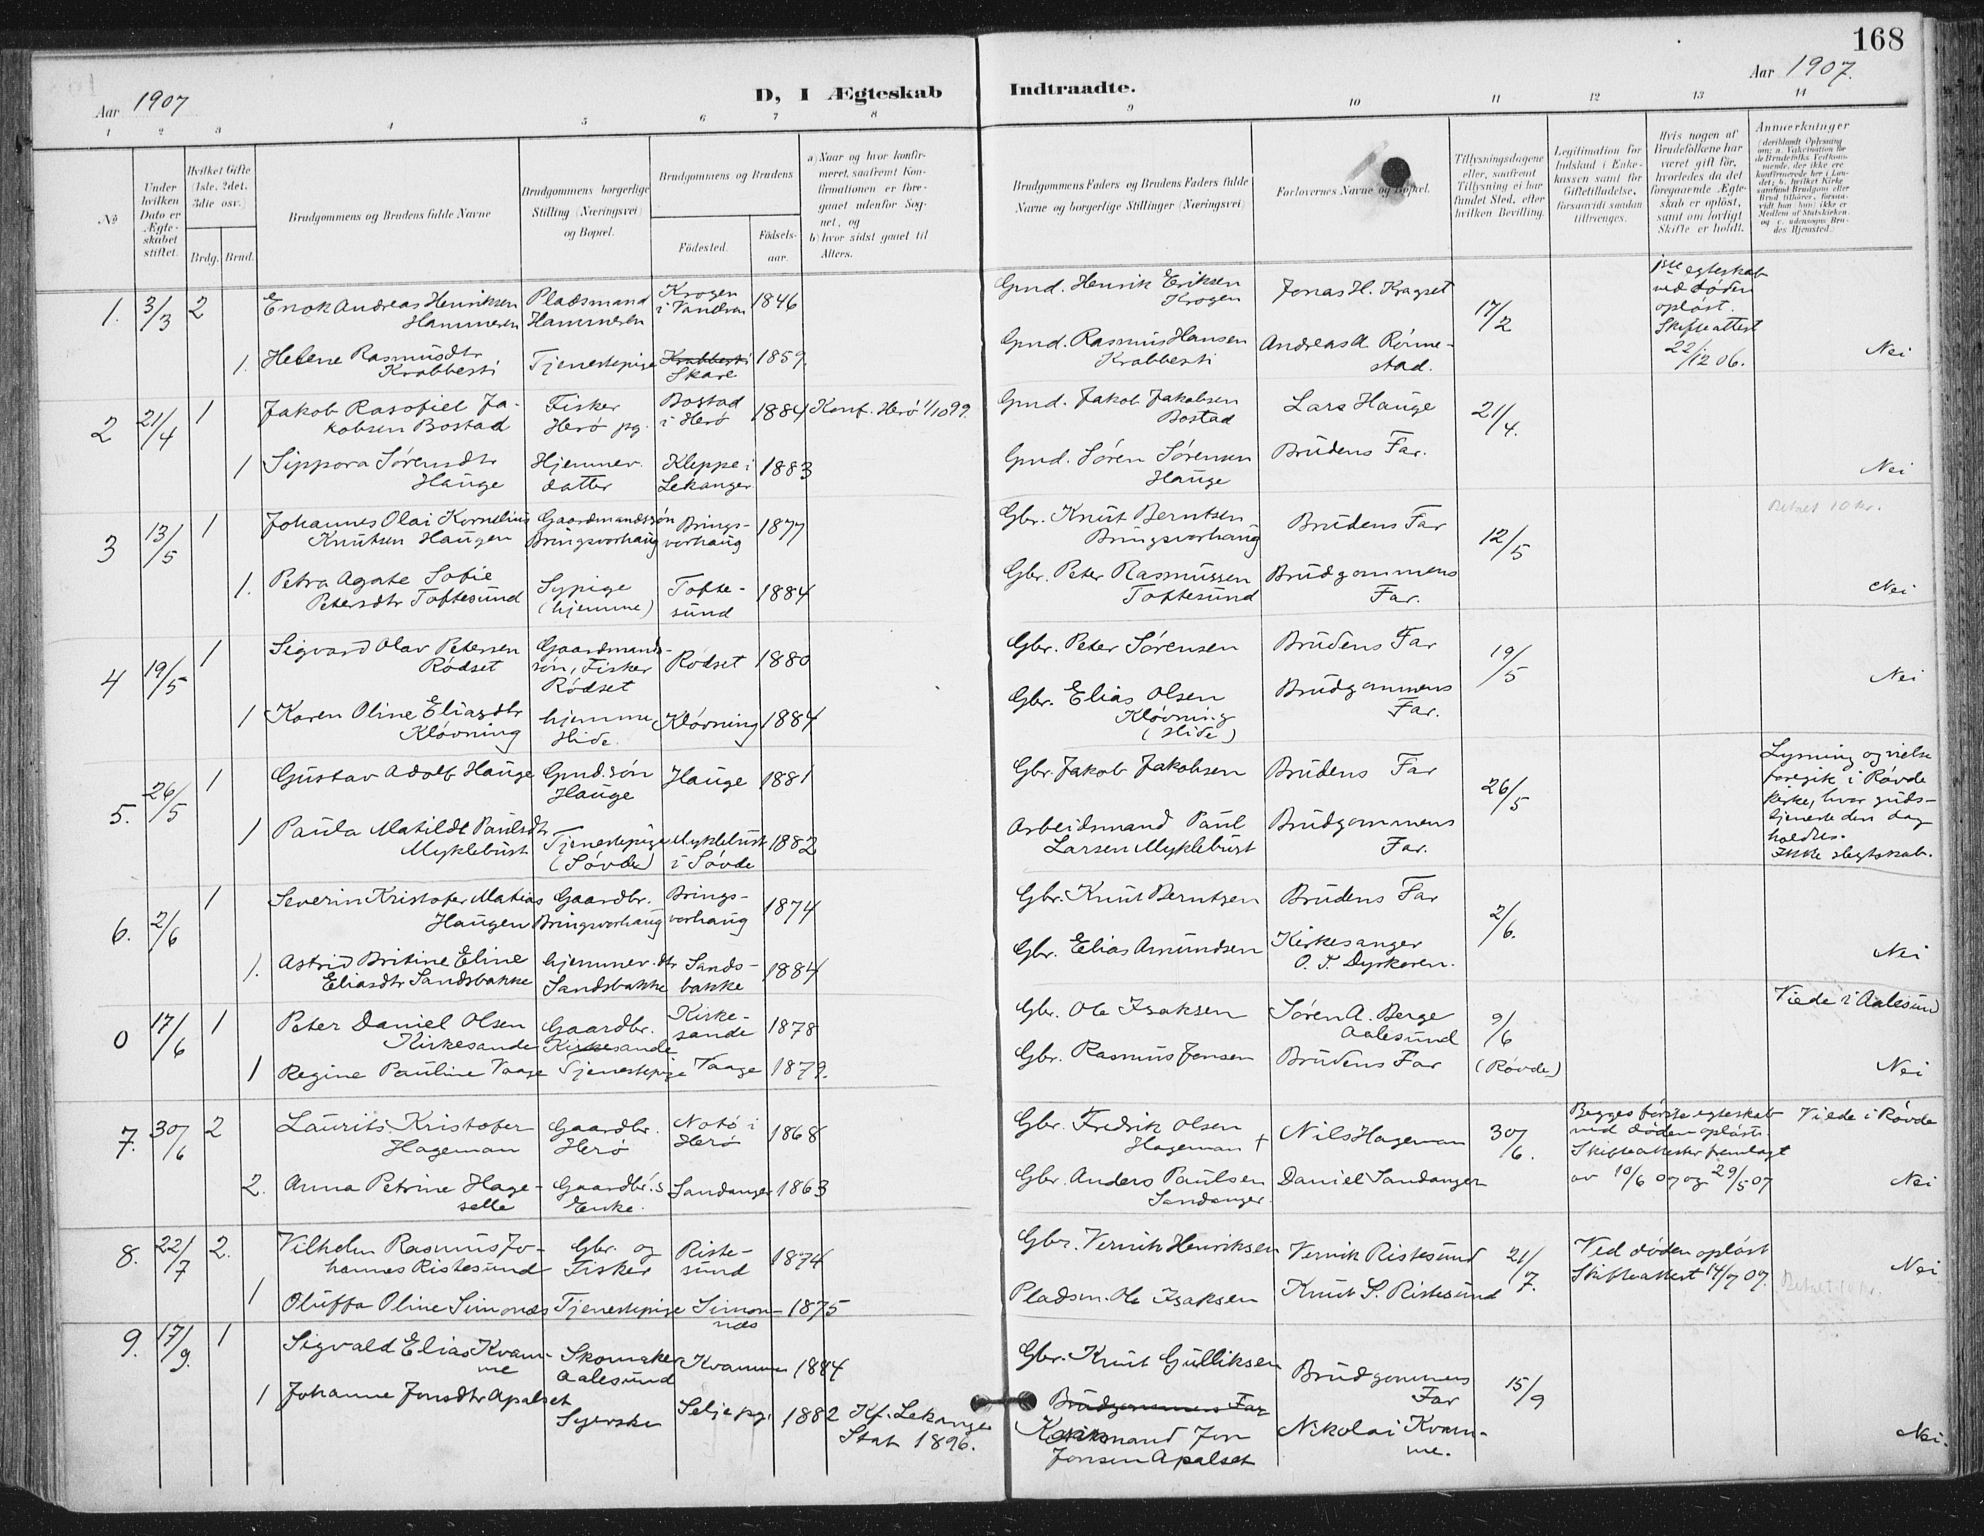 168
Aar 1907
D, I Ægteskab
Indtraadte.
Aar 1907.
1 2 3 4 5 6 7 8 9 10 11 12 13 14
No
Under hvilken Dato er Ægteskabet stiftet.
Hvilket Gifte (1ste, 2det, 3die osv.)
Brdg. Brud.
Brudgommens og Brudens fulde Navne
Brudgommens borgerlige Stilling (Næringsvei) og Bopæl.
Brudgommens og Brudens
Fødested.
Fødselsaar.
a) Naar og hvor konfirmeret, saafremt Konfirmationen er foregaaet udenfor Sognet, og
b) hvor sidst gaaet til Alters.
Brudgommens Faders og Brudens Faders fulde Navne og borgerlige Stillinger (Næringsvei)
Forlovernes Navne og Bopæl.
Tillysningsdagene eller, saafremt Tillysning ei har fundet Sted, efter hvilken Bevilling.
Legitimation for Indskud i Enkekassen samt for Giftetilladelse, forsaavidt saadan tiltrænges.
Hvis nogen af Brudefolkene har været gift før, hvorledes da det foregaaende Ægteskab er opløst, samt om lovligt Skifte er holdt.
Anmærkninger
1. 3/3 2 Enok Andreas Henriksen Hammeren Pladsmand Hammeren Krogen i Vandven 1846 Gmd. Henrik Eriksen Krogen Jonas H. Kragset 17/2 1ste egteskab ved døden opløst. Skifteattest 22/12 06.
1. Helene Rasmusdtr Krabbesti Tjenestepige Krabbesti Skare 1859. Gmd. Rasmus Hansen Krabbesti Andreas A Rønnestad. Nei
2 21/4 1 Jakob Rasofiel Jakobsen Bostad Fisker Herø pg. Bostad i Herø 1884 Konf. Herø 1/10 99. Gmd. Jakob Jakobsen Bostad Lars Hauge 21/4.
1 Sippora Sørensdtr Hauge Hjemmev. datter Kleppe i Lekanger 1883 Gmd. Søren Sørensen Hauge Brudens Far. Nei
3 13/5 1 Johannes Olai Kornelius Knutsen Haugen Gaardmandssøn Bringsvorhaug Bringsvorhaug 1877 Gbr. Knut Berntsen Bringsvorhaug Brudens Far 12/5 Betalt 10 kr.
1. Petra Agate Sofie Petersdtr Toftesund Sypige (hjemme) Toftesund 1884 Gbr. Peter Rasmussen Toftesund Brudgommens Far. Nei
4 19/5 1 Sigvard Olav Petersen Rødset Gaardmandssøn, Fisker Rødset Rødset 1880 Gbr. Peter Sørensen Brudens Far 19/5
1 Karen Oline Eliasdtr Kløvning hjemme Hide. Kløvning 1884 Gbr. Elias Olsen Kløvning (Hide) Brudgommens Far. Nei
5. 26/5 1 Gustav Adolf Hauge Gmd.søn Hauge Hauge 1881 Gbr. Jakob Jakobsen Brudens Far 26/5 Lysning og vielse foregik i Røvde kirke, hvor gudstjeneste den dag holdtes. Ikke slegtskab.
1 Paula Matilde Paulsdtr Myklebust Tjenestepige (Søvde) Myklebust i Søvde 1882 Arbeidsmand Paul Larsen Myklebust Brudgommens Far.
6. 2/6 1 Severin Kristofer Matias Haugen Gaardbr. Bringsvorhaug Bringsvorhaug 1874 Gbr. Knut Berntsen Brudens Far 2/6.
1. Astrid Britine Eline Eliasdtr Sandsbakke hjemmev. dtr Sandsbakke Sandsbakke 1884 Gbr. Elias Amundsen Kirkesanger O. T. Dyrkoren. Nei
0 17/6 1 Peter Daniel Olsen Kirkesande Gaardbr. Kirkesande Kirkesande 1878 Gbr. Ole Isaksen Søren A. Berge Aalesund 9/6 (Røvde) Viede i Aalesund
1 Regine Pauline Vaage Tjenestepige Vaage 1879. Gbr. Rasmus Jensen Brudens Far Nei
7. 30/6 2 Laurits Kristofer Hageman Gaardbr. Herø Notø i Herø 1868 Gbr. Fredrik Olsen Hageman + Nils Hageman 30/6. Begges første egteskab ved døden opløst. Skifteattester fremlagt av 10/6 07 og 29/5 07 Viede i Røvde
2. Anna Petrine Hageselle Gaardbr.s Enke. Sandanger 1863 Gbr. Anders Paulsen Sandanger. Daniel Sandanger Nei
8. 22/7 2. Vilhelm Rasmus Johannes Ristesund Gbr. og Fisker Ristesund 1874 Gbr. Vernik Henriksen Vernik Ristesund 21/7. Ved døden opløst Skifteattest 14/7 07. Betalt 10 kr. Nei
1 Oluffa Oline Simonnes Tjenestepige Simonnes 1875 Pladsm. Ole Isaksen Knut S. Ristesund
9. 17/9. 1 Sigvald Elias Kvamme Skomaker Aalesund Kvamme 1884 Gbr. Knut Gulliksen Brudgommens Far 15/9
1 Johanne Jonsdtr Apalset Syerske Selje pg. 1882 Kf. Lekanger Stat 1896. Brudgommens Far mand Jon Jonsen Apalset Nikolai Kvamme. Nei.